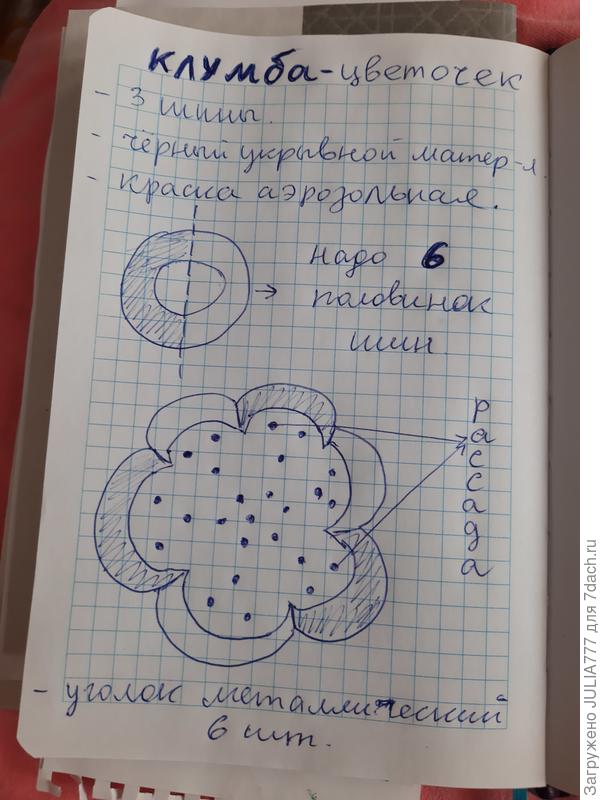 клумба-цветочек
- 3 шины.
- чёрный укрывной матер-л.
- краска аэрозольная.
Надо 6
половинок
шин
рассада
- уголок металлический
6 шт.
Загружено JULIA777 для 7dach.ru